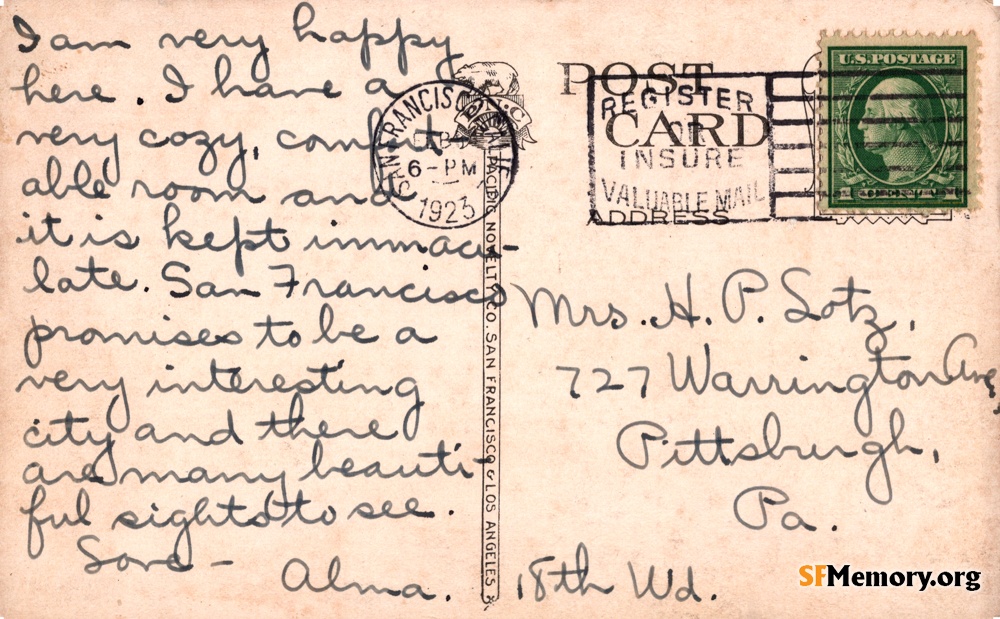 I am very happy
here. I have a
very cozy, comfort
able room and
it is kept immacu-
late. San Francisco
promises to be a
very interesting
city and there
are many beauti-
ful sights to see.
Love -
Alma.
SAN FRANCISCO
6-PM
1923
PACIFIC NOVELTY CO. SAN FRANCISCO & LOS ANGELES
POST CARD
ADDRESS
REGISTER
OR
INSURE
VALUABLE MAIL
U.S. POSTAGE
1 CENT 1
Mrs. H. P. Lotz,
727 Warrington Ave,
Pittsburgh,
Pa.
18th Wd.
SFMemory.org